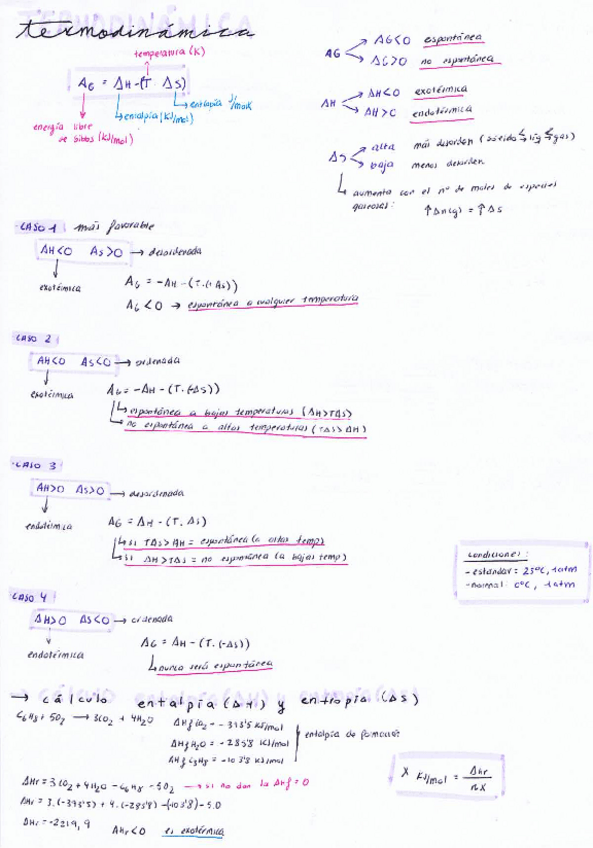 termodinámica
temperatura (K)
AG = ΔH-(T. ΔS)
entropía J/molK
entalpía (KJ/mol)
energía libre
de Gibbs (KJ/mol)
AG
ΔG<0 espontánea
ΔG>0 no espontánea
ΔH
ΔH<0 exotérmica
ΔH>0 endotérmica
ΔS
alta más desorden (sólido < líq < gas)
baja menos desorden
aumenta con el nº de moles de especies
gaseosas: ↑Δn(g) = ↑ΔS
CASO 1 más favorable
ΔH<0 ΔS>0 → desordenada
exotérmica
AG = -ΔH - (T.(+ΔS)
AG<0 → espontánea a cualquier temperatura
CASO 2
ΔH<0 ΔS<0 → ordenada
exotérmica
AG = -ΔH - (T.(-ΔS))
espontánea a bajas temperaturas (ΔH>TΔS)
no espontánea a altas temperaturas (TΔS>ΔH)
CASO 3
ΔH>0 ΔS>0 → desordenada
endotérmica
AG = ΔH - (T. ΔS)
si TΔS>ΔH = espontánea (a altas temp)
si ΔH>TΔS = no espontánea (a bajas temp)
condiciones:
- estándar = 25ºC, 1atm
- normal: 0ºC, 1atm
CASO 4
ΔH>0 ΔS<0 → ordenada
endotérmica
AG = ΔH - (T.(-ΔS))
nunca será espontánea
→ cálculo entalpía (ΔH) y entropía (ΔS)
C6H8 + 5O2 → 3CO2 + 4H2O
ΔHf CO2 = -393'5 KJ/mol
ΔHf H2O = -285'8 KJ/mol
ΔHf C3H8 = -103'8 KJ/mol
entalpía de formación
ΔHr = 3CO2 + 4H2O - C6H8 - 5O2 → si no dan la ΔHf = 0
ΔHr = 3.(-393'5) + 4.(-285'8) -(-103'8) - 5.0
ΔHr = -2219,9 ΔHr<0 es exotérmica
X KJ/mol = ΔHr / nX